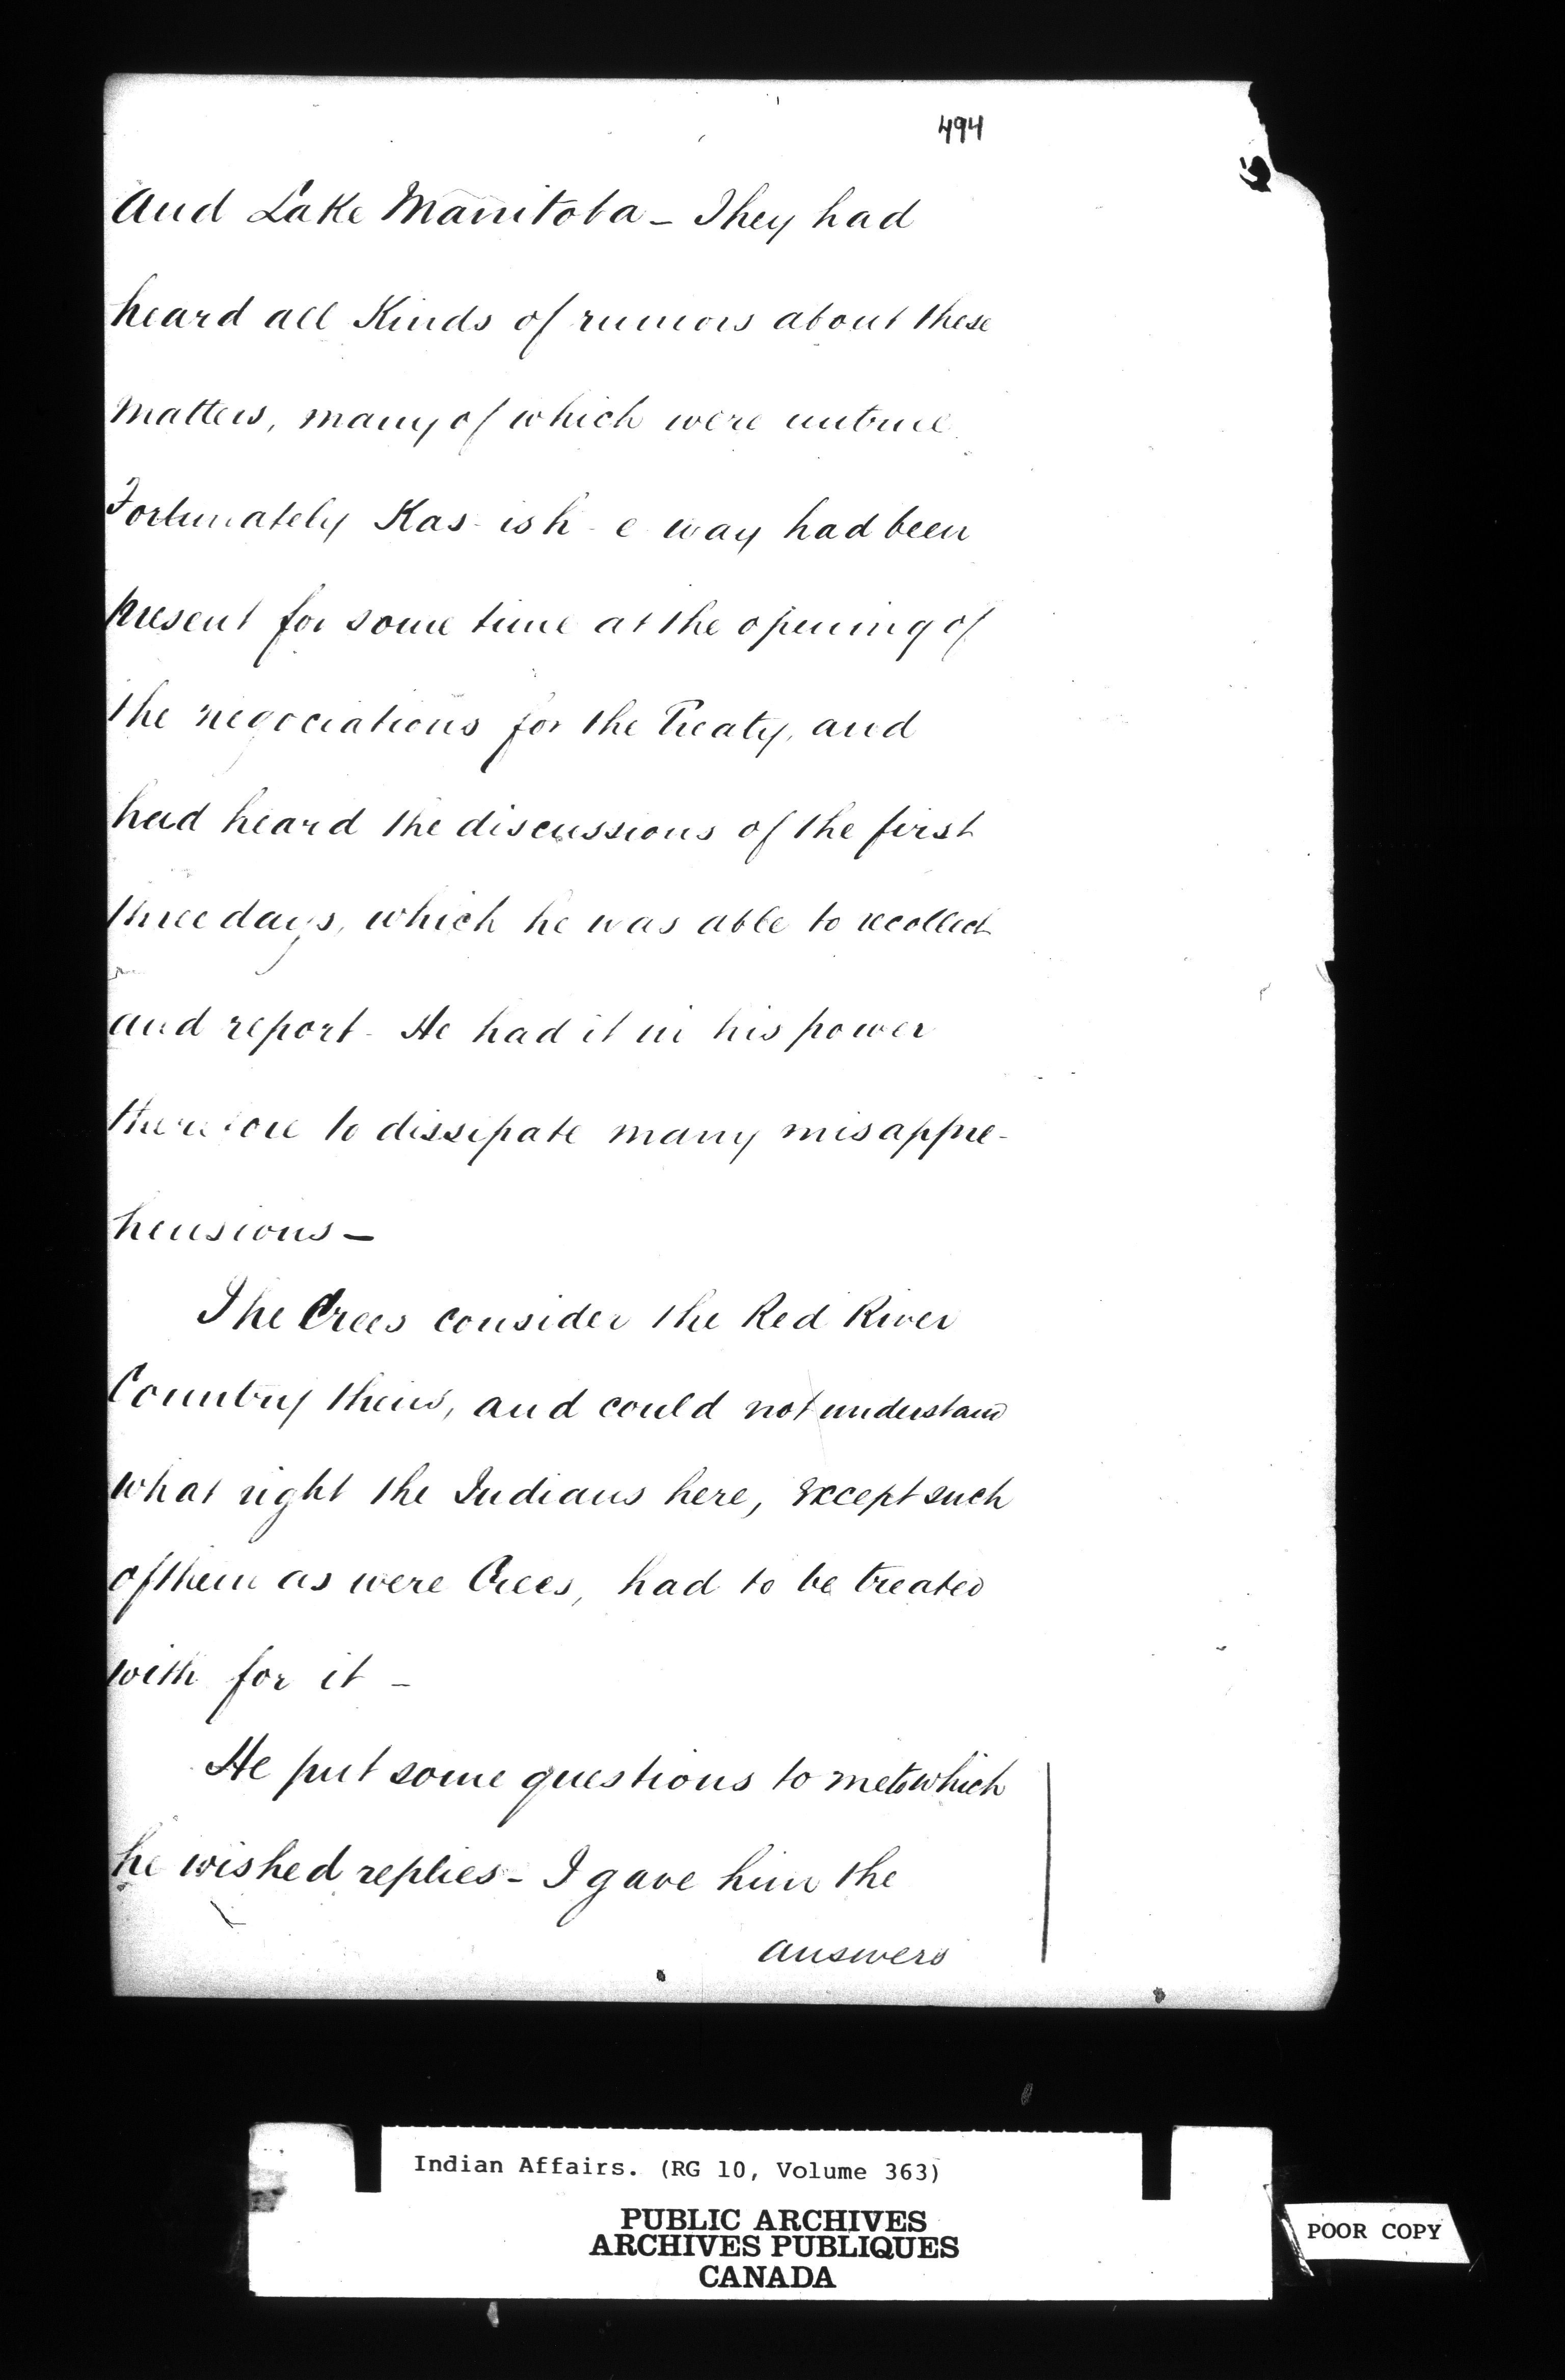 494
and Lake Manitoba - They had
heard all Kinds of rumors about these
matters, many of which were untrue.
Fortunately Kas-ish-e way had been
present for some time at the opening of
the negociations for the Treaty, and
had heard the discussions of the first
three days, which he was able to recollect
and report - He had it in his power
therefore to dissipate many misappre-
hensions -
The Crees consider the Red River
Country theirs, and could not understand
what right the Indians here, except such
of them as were Crees, had to be treated
with for it -
He put some questions to me to which
he wished replies - I gave him the
answers
Indian Affairs. (RG 10, Volume 363)
PUBLIC ARCHIVES
ARCHIVES PUBLIQUES
CANADA
POOR COPY